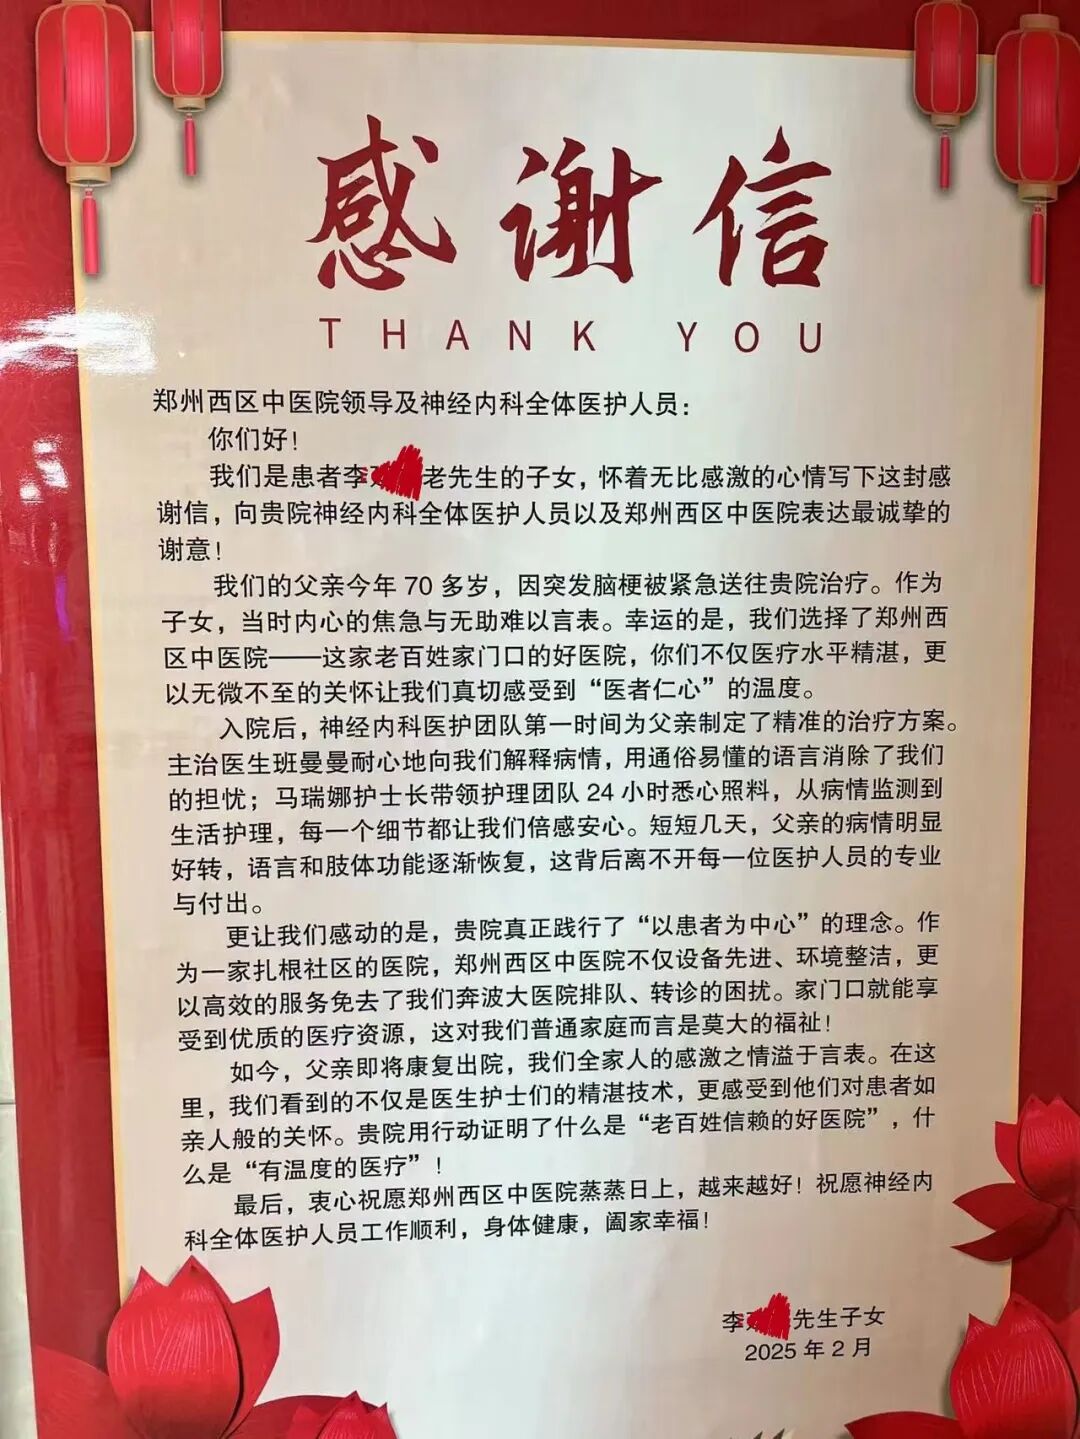 感谢信
THANK YOU
郑州西区中医院领导及神经内科全体医护人员：
你们好！
我们是患者李 老先生的子女，怀着无比感激的心情写下这封感
谢信，向贵院神经内科全体医护人员以及郑州西区中医院表达最诚挚的
谢意！
我们的父亲今年 70 多岁，因突发脑梗被紧急送往贵院治疗。作为
子女，当时内心的焦急与无助难以言表。幸运的是，我们选择了郑州西
区中医院——这家老百姓家门口的好医院，你们不仅医疗水平精湛，更
以无微不至的关怀让我们真切感受到“医者仁心”的温度。
入院后，神经内科医护团队第一时间为父亲制定了精准的治疗方案。
主治医生班曼曼耐心地向我们解释病情，用通俗易懂的语言消除了我们
的担忧；马瑞娜护士长带领护理团队 24 小时悉心照料，从病情监测到
生活护理，每一个细节都让我们倍感安心。短短几天，父亲的病情明显
好转，语言和肢体功能逐渐恢复，这背后离不开每一位医护人员的专业
与付出。
更让我们感动的是，贵院真正践行了“以患者为中心”的理念。作
为一家扎根社区的医院，郑州西区中医院不仅设备先进、环境整洁，更
以高效的服务免去了我们奔波大医院排队、转诊的困扰。家门口就能享
受到优质的医疗资源，这对我们普通家庭而言是莫大的福祉！
如今，父亲即将康复出院，我们全家人的感激之情溢于言表。在这
里，我们看到的不仅是医生护士们的精湛技术，更感受到他们对患者如
亲人般的关怀。贵院用行动证明了什么是“老百姓信赖的好医院”，什
么是“有温度的医疗”！
最后，衷心祝愿郑州西区中医院蒸蒸日上，越来越好！祝愿神经内
科全体医护人员工作顺利，身体健康，阖家幸福！
李 先生子女
2025 年 2 月